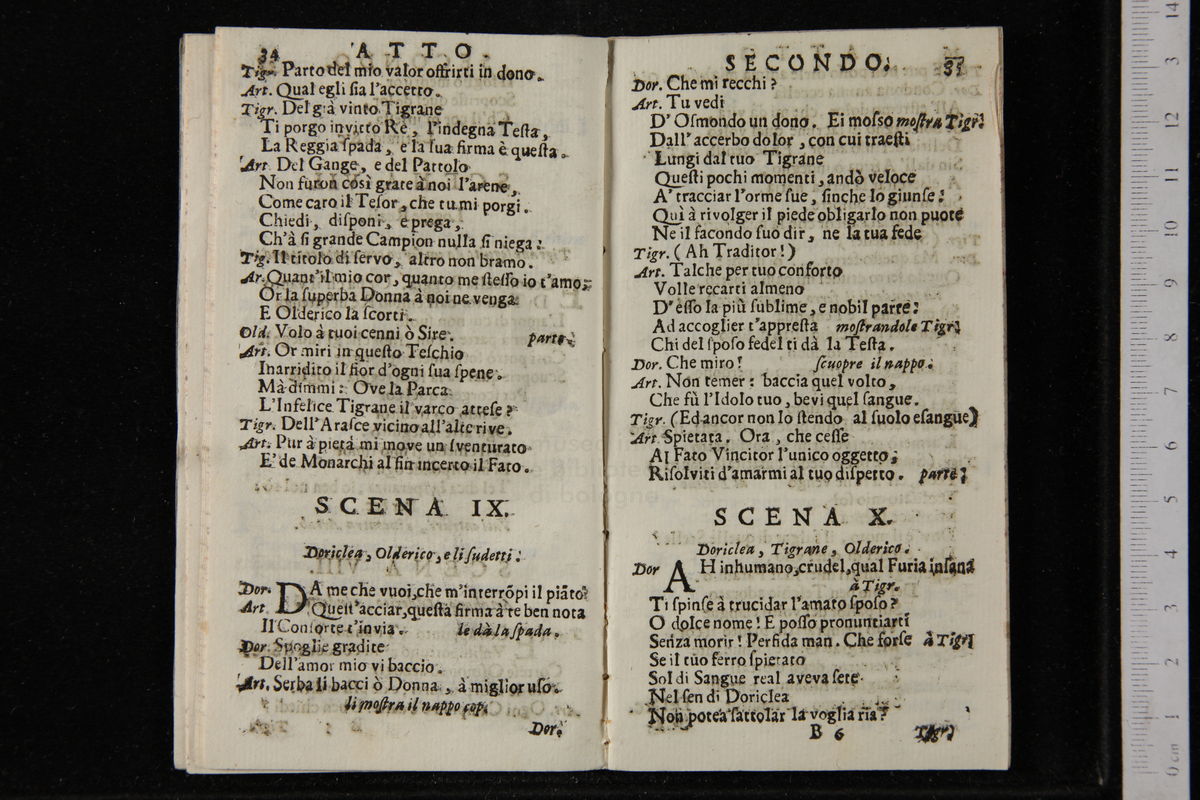 34 ATTO
Tig. Parto del mio valor offrirti in dono.
Art. Qual egli sia l'accetto.
Tigr. Del già vinto Tigrane
Ti porgo invitto Rè, l'indegna Testa,
La Reggia spada, e la sua firma è questa.
Art. Del Gange, e del Pattolo
Non furon così grate à noi l'arene,
Come caro il Tesor, che tu mi porgi.
Chiedi, disponi, e prega,
Ch'à sì grande Campion nulla si niega.
Tig. Il titolo di servo, altro non bramo.
Ar. Quant'il mio cor, quanto me stesso io t'amo;
Or la superba Donna à noi ne venga
E Olderico la scorti.
Old. Volo à tuoi cenni ò Sire. parte.
Art. Or miri in questo Teschio
Inarridito il fior d'ogni sua spene.
Mà dimmi: Ove la Parca
L'Infelice Tigrane il varco attese?
Tigr. Dell'Arasce vicino all'alte rive.
Art. Pur à pietà mi move un sventurato
E' de Monarchi al fin incerto il Fato.
SCENA IX.
Doriclea, Olderico, e li sudetti.
Dor. DA me che vuoi, che m'interrõpi il piãto?
Art. Quest'acciar, questa firma à te ben nota
Il Conforte t'invia. le dà la spada.
Dor. Spoglie gradite
Dell'amor mio vi baccio.
Art. Serba li bacci ò Donna, à miglior uso.
li mostra il nappo cop.
Dor.
SECONDO. 35
Dor. Che mi recchi?
Art. Tu vedi
D'Osmondo un dono. Ei mosso mostra Tigr.
Dall'accerbo dolor, con cui traesti
Lungi dal tuo Tigrane
Questi pochi momenti, andò veloce
A' tracciar l'orme sue, sinche lo giunse:
Quì à rivolger il piede obligarlo non puote
Ne il facondo suo dir, ne la tua fede
Tigr. (Ah Traditor!)
Art. Talche per tuo conforto
Volle recarti almeno
D'esso la più sublime, e nobil parte:
Ad accoglier t'appresta mostrandole Tigr.
Chi del sposo fedel ti dà la Testa.
Dor. Che miro! scuopre il nappo.
Art. Non temer: baccia quel volto,
Che fù l'Idolo tuo, bevi quel sangue.
Tigr. (Ed ancor non lo stendo al suolo esangue)
Art. Spietata. Ora, che cesse
Al Fato Vincitor l'unico oggetto,
Risolviti d'amarmi al tuo dispetto. parte.
SCENA X.
Doriclea, Tigrane, Olderico.
Dor AH inhumano, crudel, qual Furia insana
à Tigr.
Ti spinse à trucidar l'amato sposo?
O dolce nome! E posso pronuntiarti
Senza morir! Perfida man. Che forse à Tigr.
Se il tuo ferro spietato
Sol di Sangue real aveva sete
Nel sen di Doriclea
Non potea sattolar la voglia ria?
B 6 Tigr.
0 cm 1 2 3 4 5 6 7 8 9 10 11 12 13 14